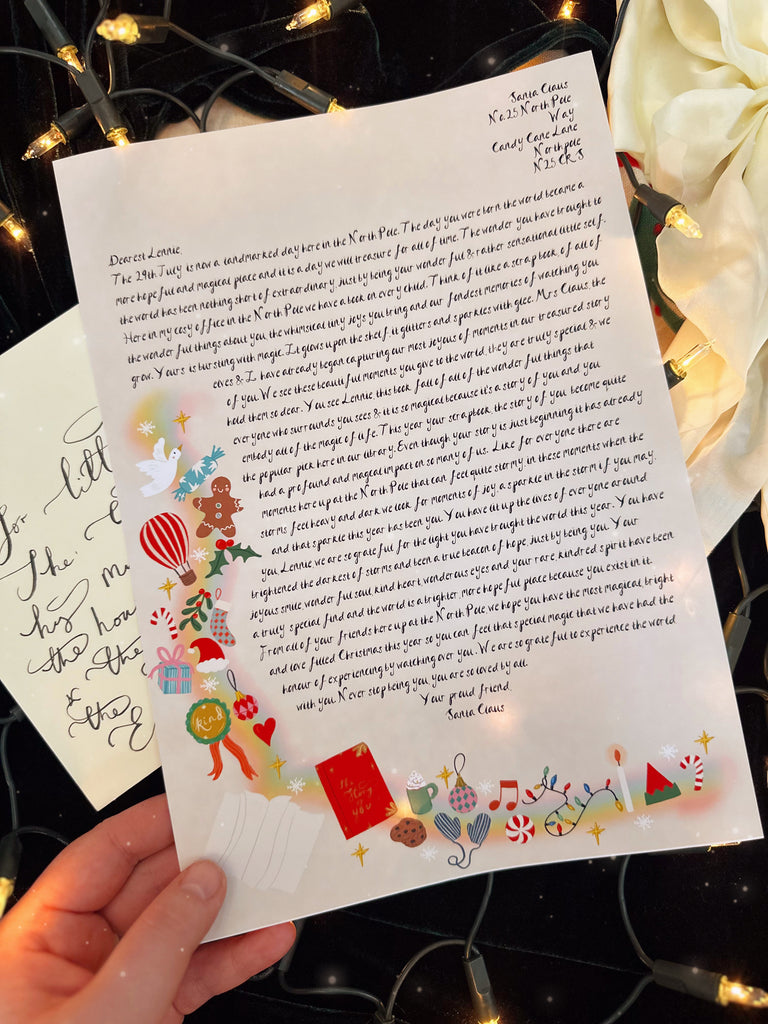 Santa Claus
No.25 North Pole
Way
Candy Cane Lane
Northpole
N25 CR5
Dearest Lennie,
The 29th July is now a landmarked day here in the North Pole. The day you were born the world became a
more hopeful and magical place and it is a day we will treasure for all of time. The wonder you have brought to
the world has been nothing short of extraordinary just by being your wonderful & rather sensational little self.
Here in my cosy office in the North Pole we have a book on every child. Think of it like a scrapbook, of all of
the wonderful things about you, the whimsical tiny joys you bring and our fondest memories of watching you
grow. Yours is bursting with magic. It glows upon the shelf, it glitters and sparkles with glee. Mrs Claus, the
elves & I have already began capturing our most joyous of moments in our treasured story
of you. We see these beautiful moments you give to the world, they are truly special & we
hold them so dear. You see Lennie, this book full of all of the wonderful things that
everyone who surrounds you sees & it is so magical because it's a story of you and you
embody all of the magic of life. This year your scrapbook, the story of you, become quite
the popular pick here in our library. Even though your story is just beginning it has already
had a profound and magical impact on so many of us. Like for everyone there are
moments here up at the North Pole that can feel quite stormy, in these moments when the
storms feel heavy and dark we look for moments of joy, a sparkle in the storm if you may,
and that sparkle this year has been you. You have lit up the lives of everyone around
you. Lennie we are so grateful for the light you have brought the world this year. You have
brightened the darkest of storms and been a true beacon of hope, just by being you. Your
joyous smile wonderful soul, kind heart wonderous eyes and your rare, kindred spirit have been
a truly special find and the world is a brighter, more hopeful place because you exist in it.
From all of your friends here up at the North Pole we hope you have the most magical, bright
and love filled Christmas this year so you can feel that special magic that we have had the
honour of experiencing by watching over you. We are so grateful to experience the world
with you. Never stop being you, you are so loved by all.
Your proud friend,
Santa Claus
kind
the
story
of
you
for
the
his
the
the
& the